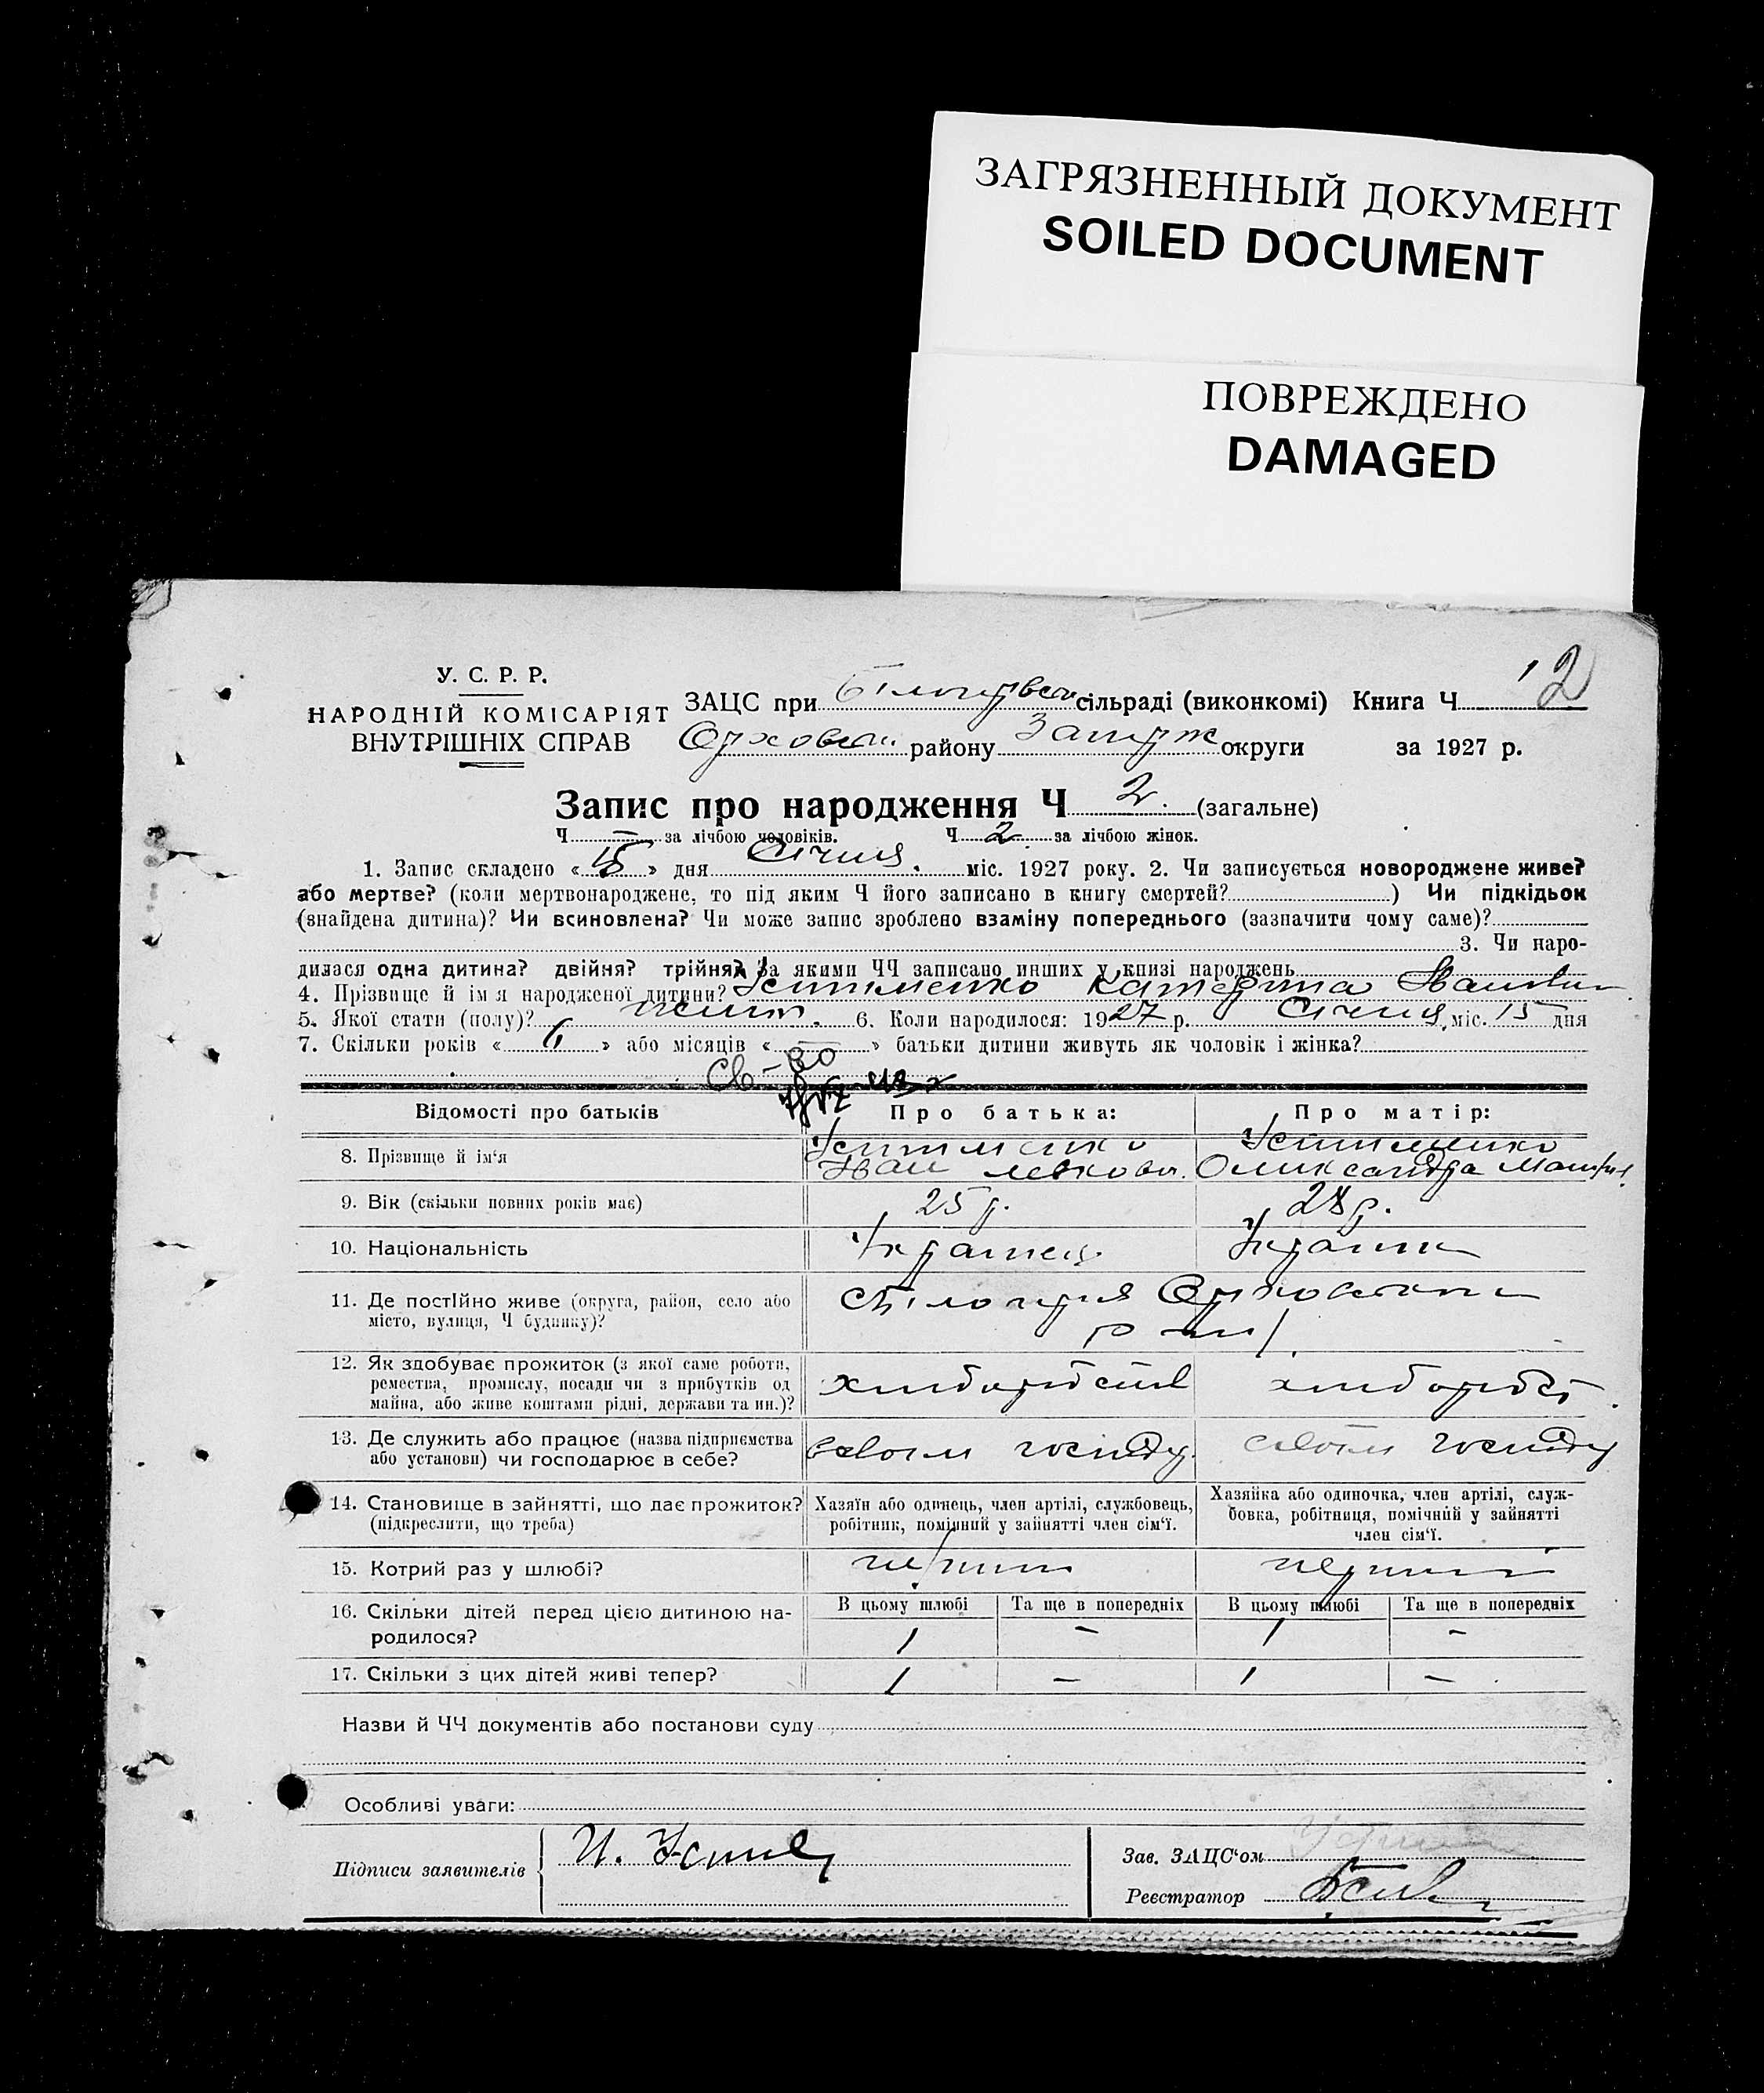 ЗАГРЯЗНЕННЫЙ ДОКУМЕНТ
SOILED DOCUMENT
ПОВРЕЖДЕНО
DAMAGED
2
У. С. Р. Р.
НАРОДНІЙ КОМІСАРІЯТ
ВНУТРІШНІХ СПРАВ
ЗАЦС при сільраді (виконкомі) Книга Ч
району Запоріж округи за 1927 р.
Запис про народження Ч 2. (загальне)
Ч — за лічбою чоловіків. Ч 2 за лічбою жінок.
1. Запис складено « 15 » дня Січня. міс. 1927 року. 2. Чи записується новороджене живе?
або мертве? (коли мертвонароджене, то під яким Ч його записано в книгу смертей? ) Чи підкідьок
(знайдена дитина)? Чи всиновлена? Чи може запис зроблено взаміну попереднього (зазначити чому саме)?
3. Чи наро-
дилася одна дитина? двійня? трійня? За якими ЧЧ записано инших у книзі народжень
4. Прізвище й ім'я народженої дитини? Устименко Катерина Іванівна
5. Якої стати (полу)? жіноч. 6. Коли народилося: 1927 р. Січня міс. 15 дня
7. Скільки років « » або місяців « — » батьки дитини живуть як чоловік і жінка?
Відомості про батьків
Про батька:
Про матір:
8. Прізвище й ім'я
Устименко
Іван Левков.
Устименко
Олександра
9. Вік (скільки повних років має)
25 р.
28 р.
10. Національність
Українець
Українка
11. Де постійно живе (округа, район, село або
місто, вулиця, Ч будинку)?
12. Як здобуває прожиток (з якої саме роботи,
ремества, промислу, посади чи з прибутків од
майна, або живе коштами рідні, держави та ин.)?
13. Де служить або працює (назва підприємства
або установи) чи господарює в себе?
14. Становище в зайнятті, що дає прожиток?
(підкреслити, що треба)
Хазяїн або одинець, член артілі, службовець,
робітник, помічний у зайнятті член сім'ї.
Хазяйка або одиночка, член артілі, служ-
бовка, робітниця, помічний у зайнятті
член сім'ї.
15. Котрий раз у шлюбі?
перший
перший
16. Скільки дітей перед цією дитиною на-
родилося?
В цьому шлюбі
Та ще в попередніх
В цьому шлюбі
Та ще в попередніх
1 — 1 —
17. Скільки з цих дітей живі тепер?
1 — 1 —
Назви й ЧЧ документів або постанови суду
Особливі уваги:
Підписи заявителів
Зав. ЗАЦС'ом
Реєстратор